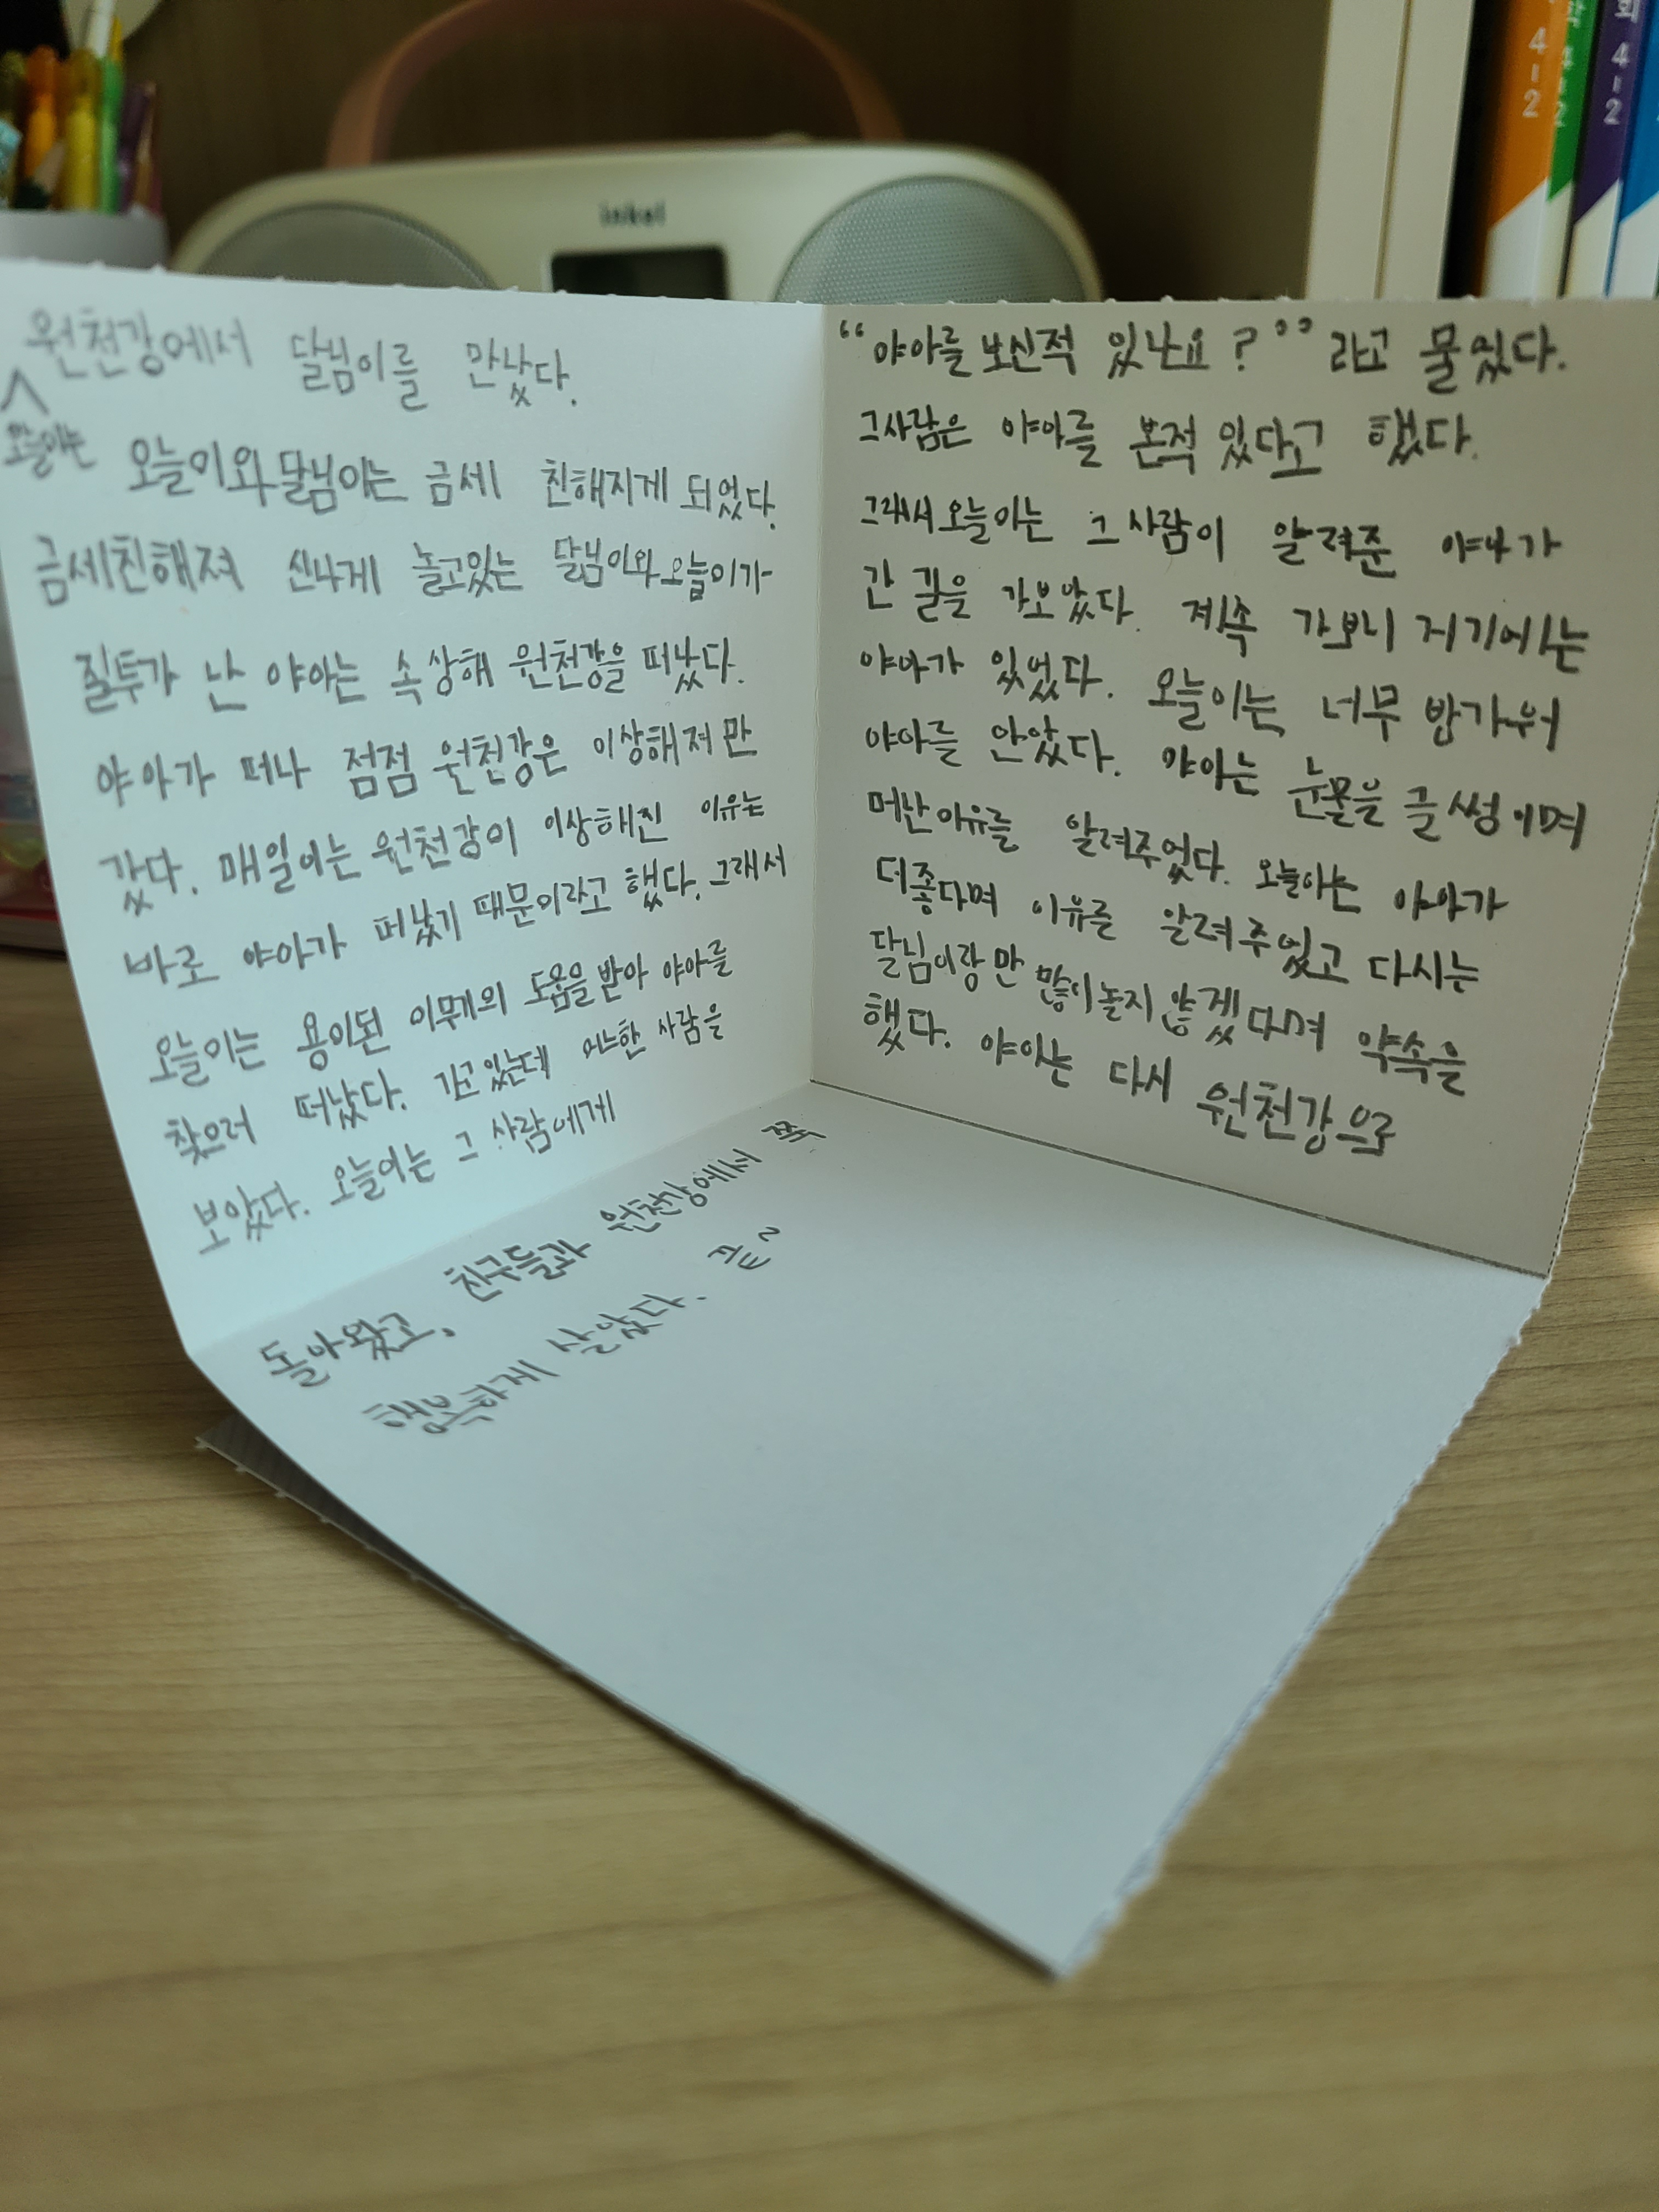 inkel
4-2
4-2
회 4-2
원천강에서 달님이를 만났다.
오늘이는
오늘이와 달님이는 금세 친해지게 되었다.
금세친해져 신나게 놀고있는 달님이와 오늘이가
질투가 난 야아는 속상해 원천강을 떠났다.
야아가 떠나 점점 원천강은 이상해져 만
갔다. 매일이는 원천강이 이상해진 이유는
바로 야아가 떠났기 때문이라고 했다. 그래서
오늘이는 용이된 이무게의 도움을 받아 야아를
찾으러 떠났다. 가고있는데 어느한 사람을
보았다. 오늘이는 그 사람에게
“야아를 보신적 있나요?” 라고 물었다.
그사람은 야아를 본적 있다고 했다.
그래서 오늘이는 그 사람이 알려준 야아가
간 길을 가보았다. 계속 가보니 저기에는
야아가 있었다. 오늘이는 너무 반가워
야아를 안았다. 야아는 눈물을 글썽이며
떠난이유를 알려주었다. 오늘이는 야아가
더좋다며 이유를 알려주었고 다시는
달님이랑 만 많이놀지 않겠다며 약속을
했다. 야아는 다시 원천강으로
돌아왔고, 친구들과 원천강에서 쭉
행복하게 살았다.